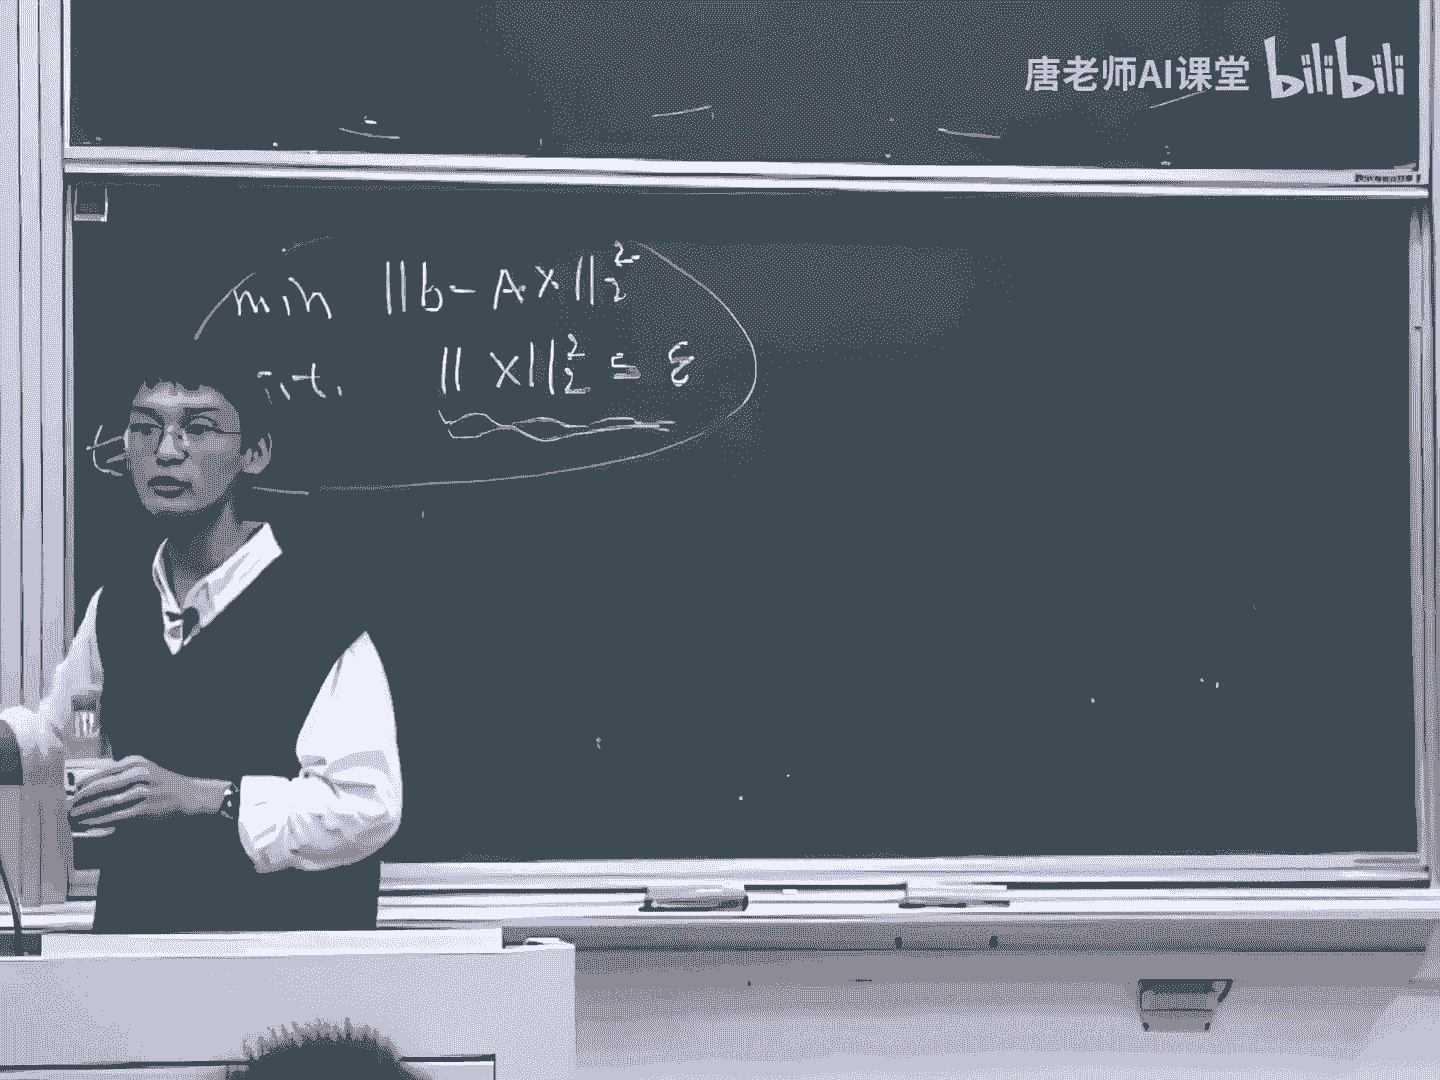 唐老师AI课堂 bilibili
min ||b - Ax||₂²
s.t. ||x||₂² ≤ ε